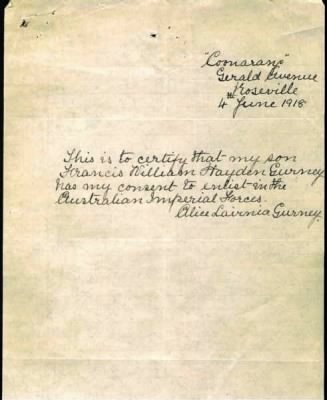 "Coonaran"
Gerald Avenue
Roseville
4th June 1918
This is to certify that my son
Francis William Hayden Gurney
has my consent to enlist in the
Australian Imperial Forces.
Alice Lavinia Gurney.